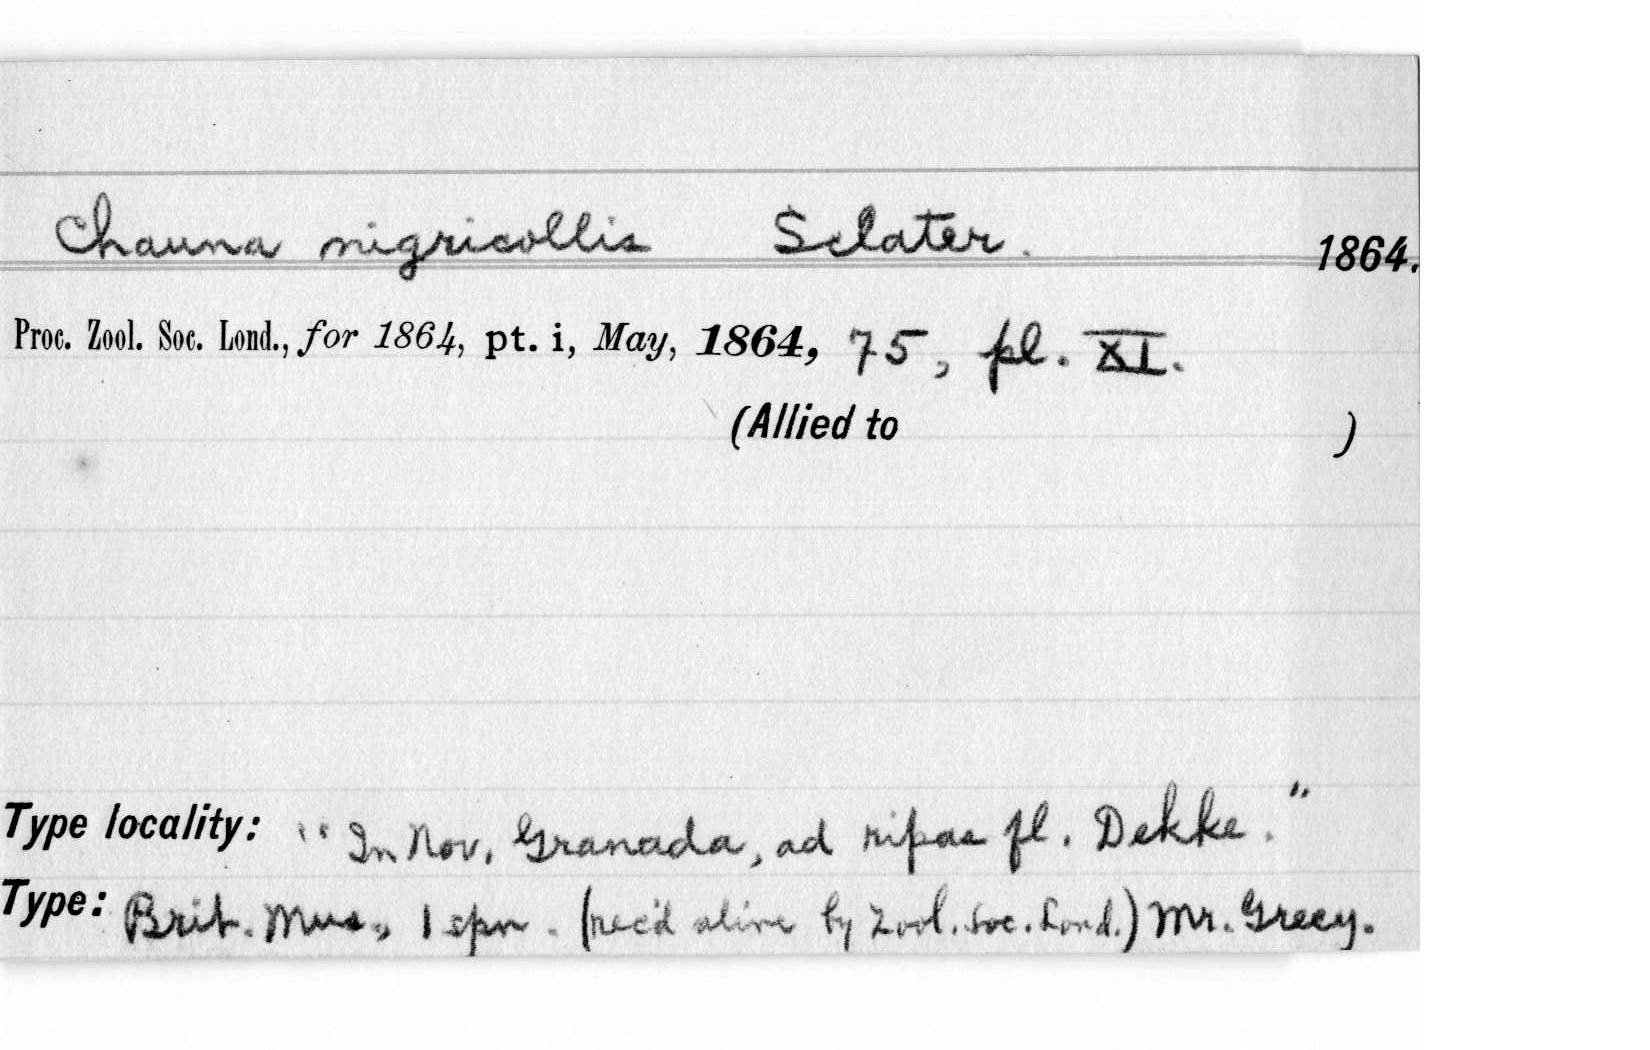 Chauna nigricollis Sclater. 1864.
Proc. Zool. Soc. Lond., for 1864, pt. i, May, 1864, 75, pl. XI.
(Allied to )
Type locality: "In Nov. Granada, ad ripas fl. Dekke."
Type: Brit. Mus., 1 spn. (rec'd alive by Zool. Soc. Lond.) Mr. Greey.